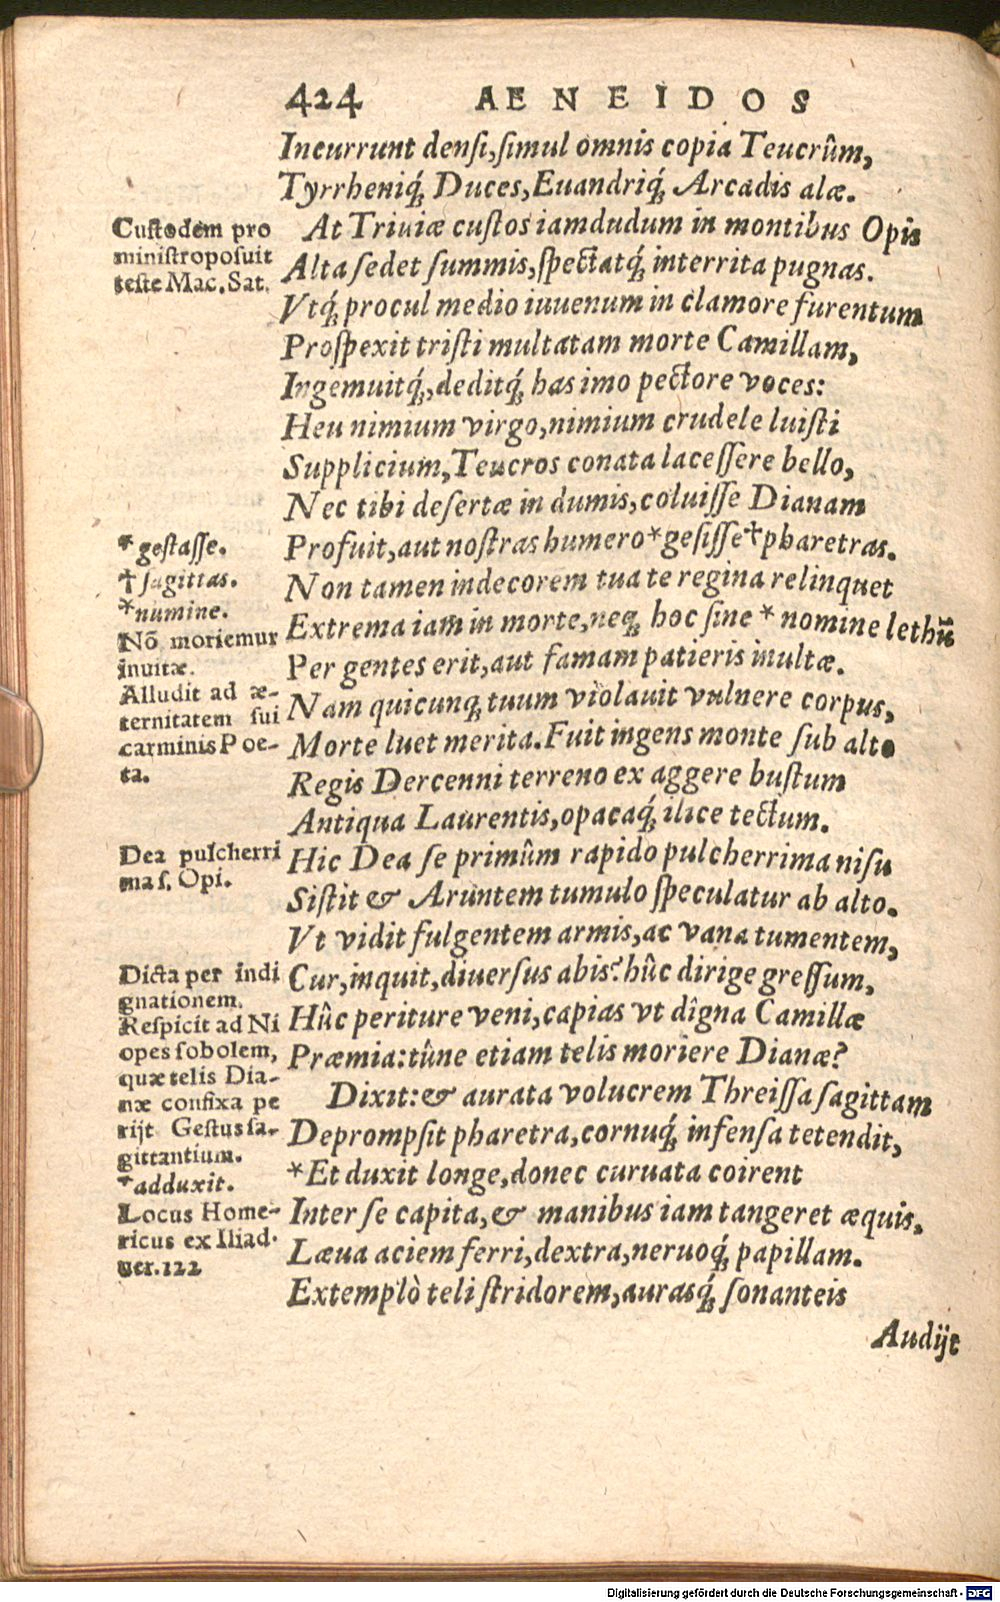 424 AENEIDOS
Incurrunt denſi,ſimul omnis copia Teucrûm,
Tyrrheniq́; Duces,Euandriq́; Arcadis alæ.
Cuſtodem pro
miniſtropoſuit
teſte Mac.Sat.
At Triuiæ cuſtos iamdudum in montibus Opis
Alta ſedet ſummis,ſpectatq́; interrita pugnas.
Vtq́; procul medio iuuenum in clamore furentum
Proſpexit triſti multatam morte Camillam,
Ingemuitq́;,deditq́; has imo pectore voces:
Heu nimium virgo,nimium crudele luiſti
Supplicium,Teucros conata laceſſere bello,
Nec tibi deſertæ in dumis,coluiſſe Dianam
*geſtaſſe.
†ſagittas.
*numine.
Nō moriemur
inuitæ.
Alludit ad æ-
ternitatem ſui
carminis Poe-
ta.
Profuit,aut noſtras humero*geſiſſe†pharetras.
Non tamen indecorem tua te regina relinquet
Extrema iam in morte,neq; hoc ſine * nomine lethũ
Per gentes erit,aut famam patieris inultæ.
Nam quicunq; tuum violauit vulnere corpus,
Morte luet merita.Fuit ingens monte ſub alto
Regis Dercenni terreno ex aggere buſtum
Antiqua Laurentis,opacaq́; ilice tectum.
Dea pulcherri
ma ſ. Opi.
Hic Dea ſe primûm rapido pulcherrima niſu
Siſtit & Aruntem tumulo ſpeculatur ab alto.
Vt vidit fulgentem armis,ac vana tumentem,
Dicta per indi
gnationem.
Reſpicit ad Ni
opes ſobolem,
quæ telis Dia-
næ confixa pe
rijt Geſtus ſa-
gittantium.
*adduxit.
Locus Home-
ricus ex Iliad.
uer.122
Cur,inquit,diuerſus abis? hûc dirige greſſum,
Hûc periture veni,capias vt dîgna Camillæ
Præmia:tûne etiam telis moriere Dianæ?
Dixit:& aurata volucrem Threiſſa ſagittam
Deprompſit pharetra,cornuq́; infenſa tetendit,
*Et duxit longe,donec curuata coirent
Inter ſe capita,& manibus iam tangeret æquis,
Læua aciem ferri,dextra,neruoq́; papillam.
Extemplò teli ſtridorem,aurasq́; ſonanteis
Audijt
Digitalisierung gefördert durch die Deutsche Forschungsgemeinschaft - DFG